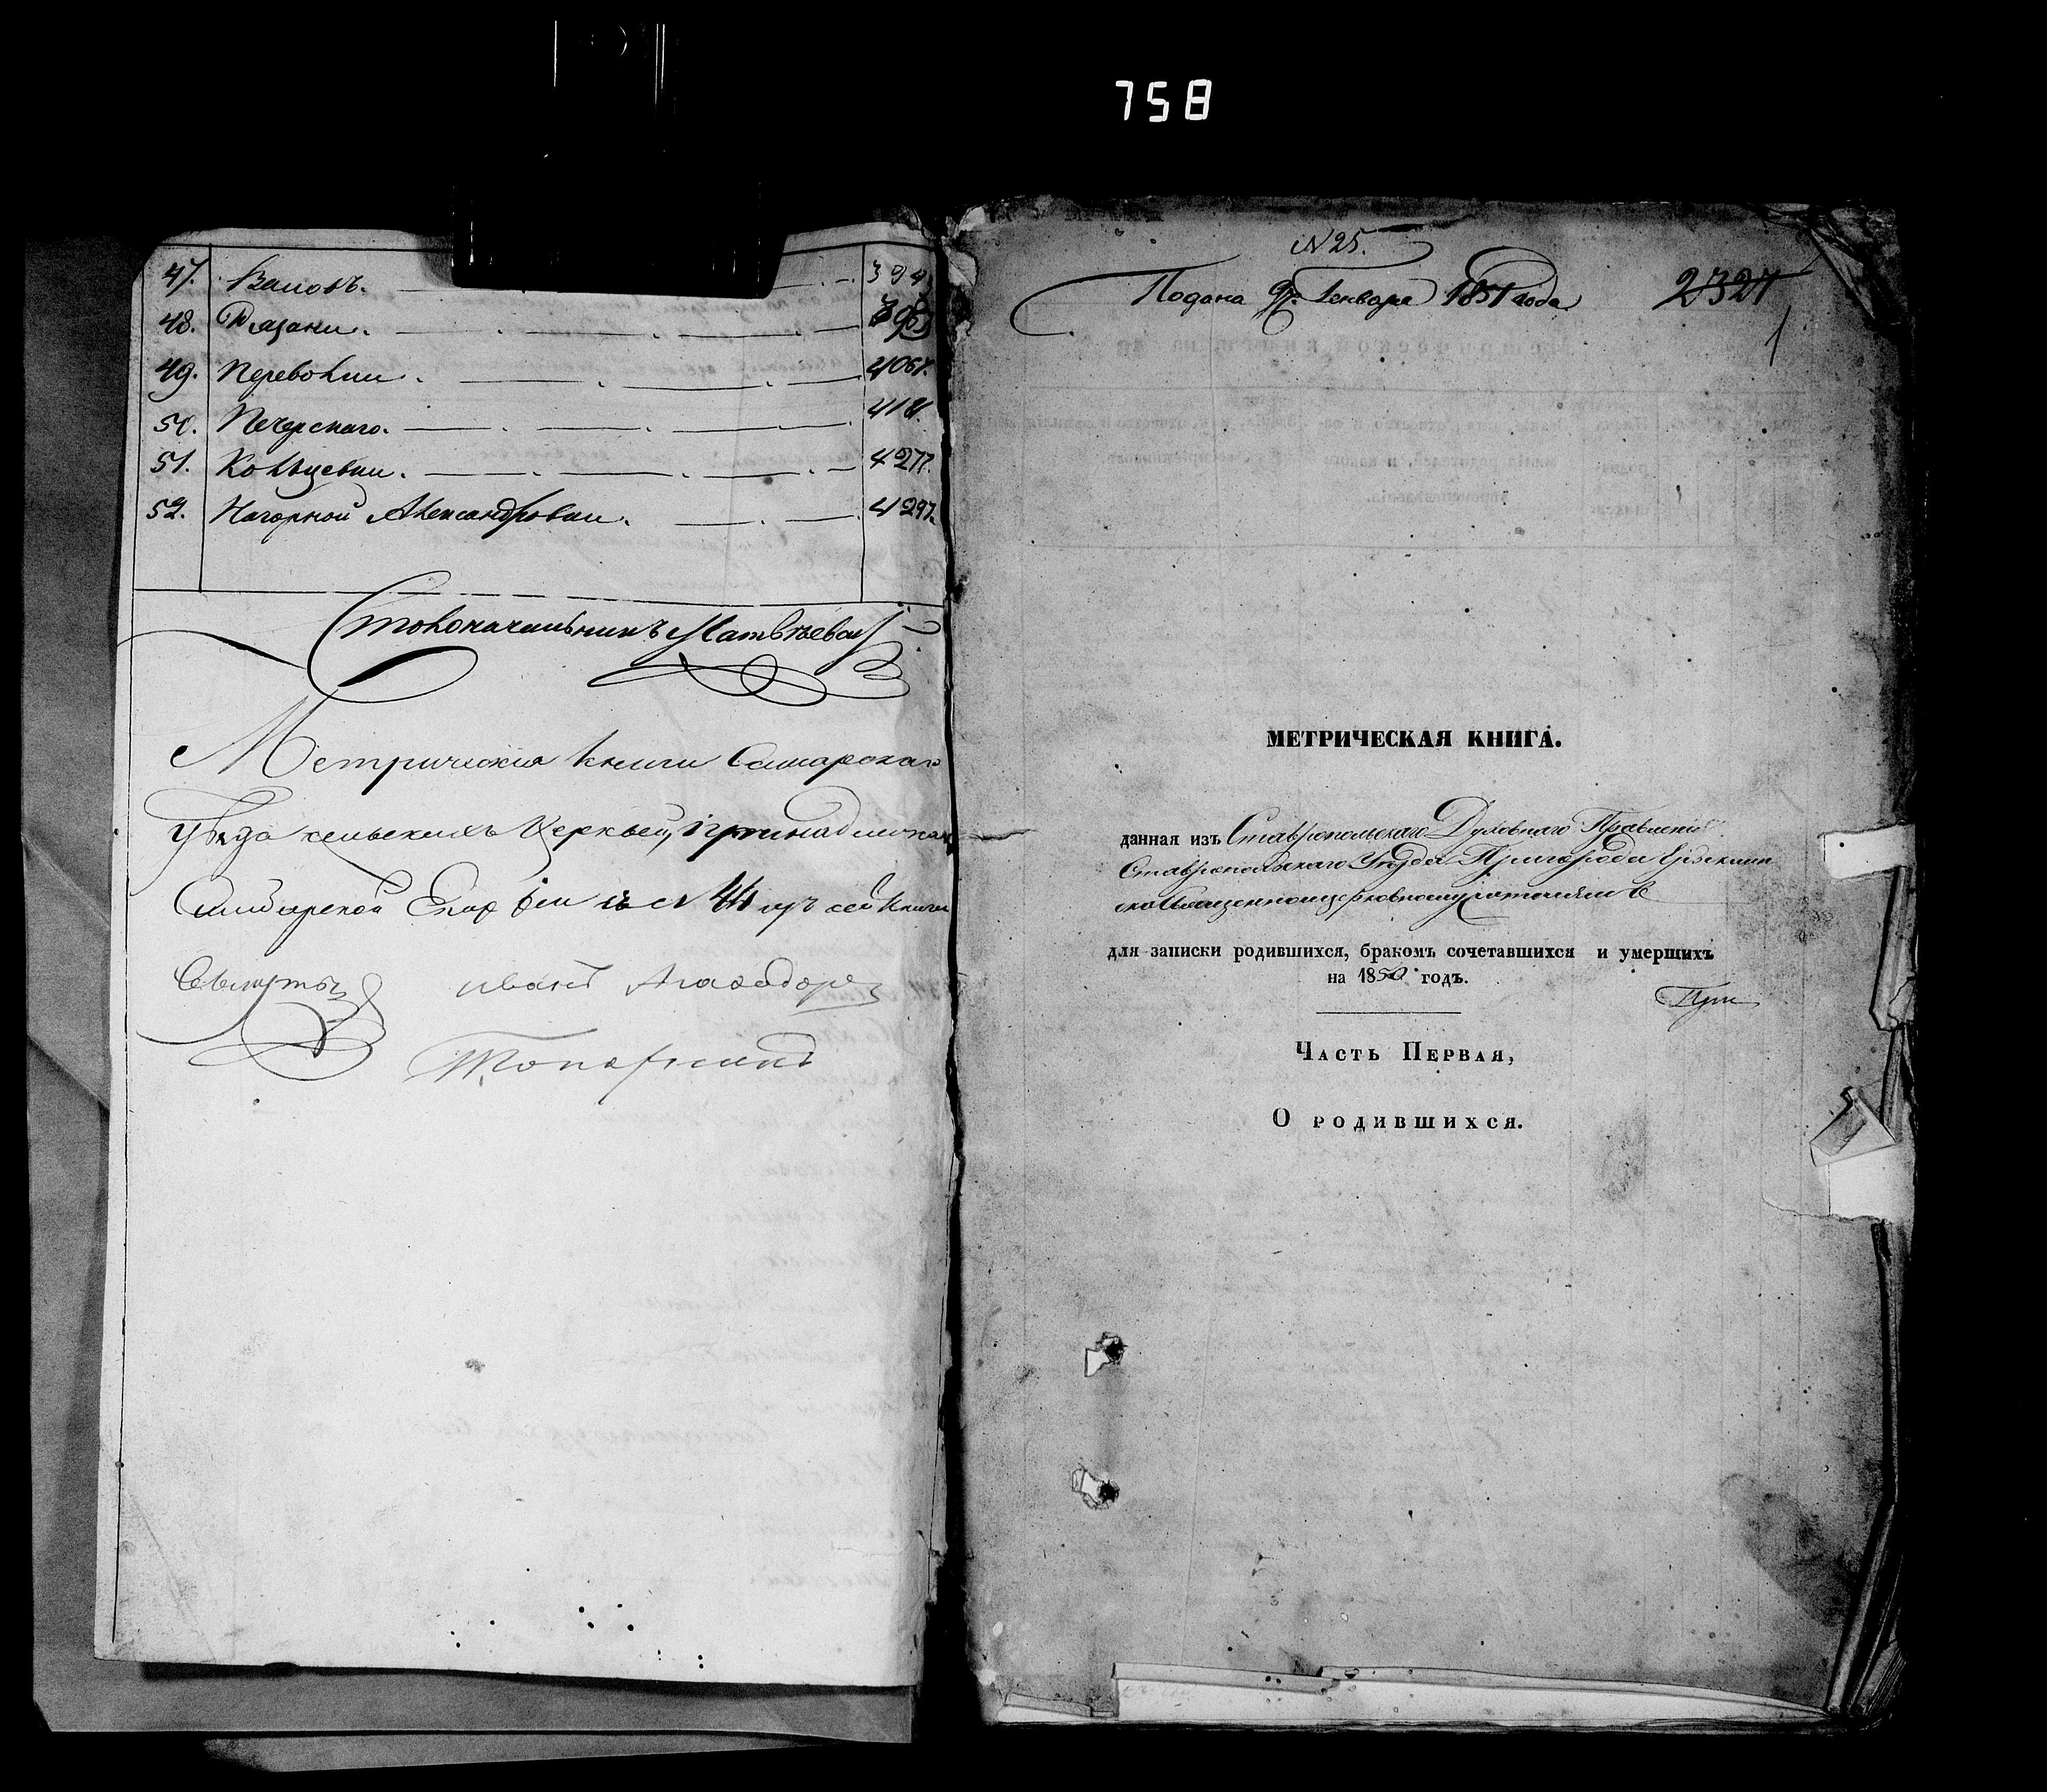 758
47. Валовъ. 394
48. Рязани.
49. Переволки. 4067.
50. Печерскаго. 418.
51. Кольцевки. 4277.
52. Нагорной Александровки. 4297.
Столоначальникъ Матвѣевъ
Метрическія книги Самарскаго
уѣзда сельскихъ церквей, принадлежащ
Симбирской Епархіи съ № 44 изъ сей книги
Иванъ
N 25.
Подана 9 Генваря 1851 года
2327
1
МЕТРИЧЕСКАЯ КНИГА.
данная изъ Ставропольскаго Духовнаго Правленія
Ставропольскаго Уѣзда Пригорода Ерыклин
для записки родившихся, бракомъ сочетавшихся и умершихъ
на 1850 годъ.
Часть Первая,
О родившихся.